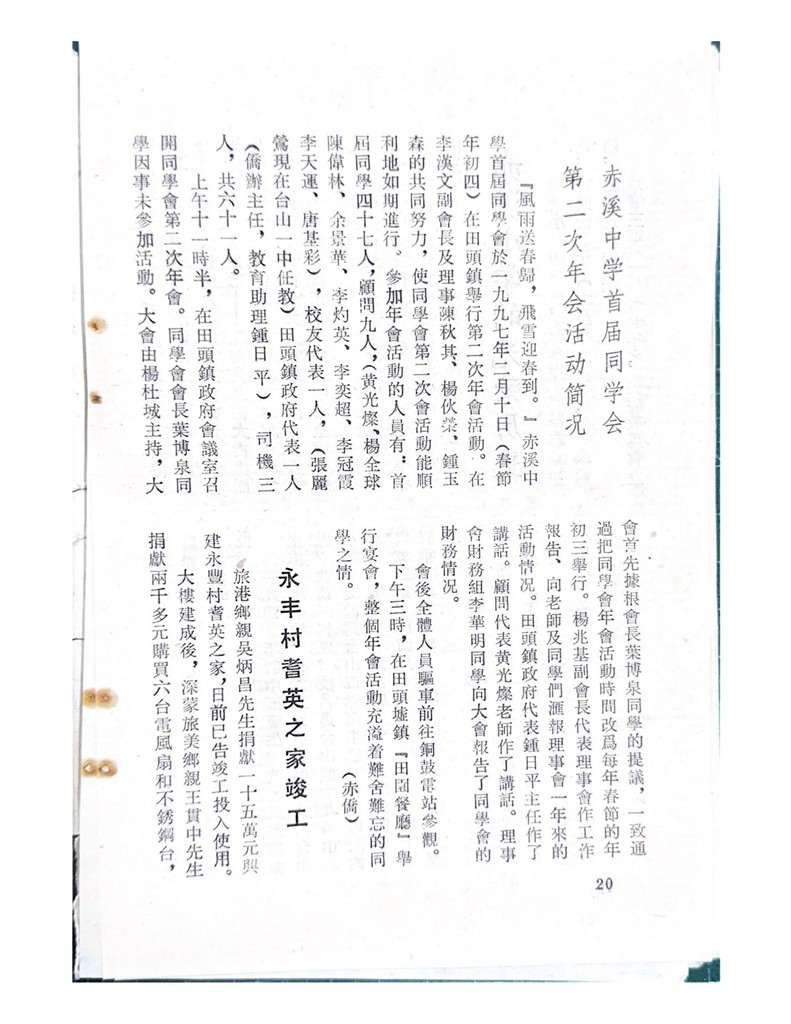 赤溪中学首届同学会
第二次年会活动简况
『風雨送春歸，飛雪迎春到。』赤溪中
學首屆同學會於一九九七年二月十日（春節
年初四）在田頭鎮舉行第二次年會活動。在
李漢文副會長及理事陳秋其、楊伙棠、鍾玉
森的共同努力，使同學會第二次會活動能順
利地如期進行。參加年會活動的人員有：首
屆同學四十七人，顧問九人，（黃光燦、楊全球
陳偉林、余景華、李灼英、李奕超、李冠霞
李天運、唐基彩），校友代表一人，（張麗
鶯現在台山一中任教）田頭鎮政府代表一人
（僑辦主任，教育助理鍾日平），司機三
人，共六十一人。
上午十一時半，在田頭鎮政府會議室召
開同學會第二次年會。同學會會長葉博泉同
學因事未參加活動。大會由楊杜城主持，大
會首先據根會長葉博泉同學的提議，一致通
過把同學會年會活動時間改爲每年春節的年
初三舉行。楊兆基副會長代表理事會作工作
報告、向老師及同學們滙報理事會一年來的
活動情况。田頭鎮政府代表鍾日平主任作了
講話。顧問代表黄光燦老師作了講話。理事
會財務組李華明同學向大會報告了同學會的
財務情况。
會後全體人員驅車前往銅鼓電站參觀。
下午三時，在田頭墟鎮『田園餐廳』舉
行宴會，整個年會活動充溢着難舍難忘的同
學之情。
（赤僑）
永丰村耆英之家竣工
旅港鄉親吳炳昌先生捐獻一十五萬元興
建永豐村耆英之家，日前已告竣工投入使用。
大樓建成後，深蒙旅美鄉親王貫中先生
捐獻兩千多元購買六台電風扇和不銹鋼台，
20